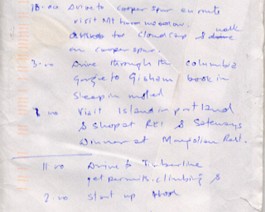 10.00 Drive to cooper spur en route
visit Mt hood meadow.
to cloud cap & walk
on cooper spur.
3.00 Drive through the columbia
Gorge to Gisham book in
Sleep in motel
visit Island in portland
& shop at REI & Safeways
Dinner at Mongolian Rest.
11.00 Drive to Timberline
get permits climbing &
2.00 start up